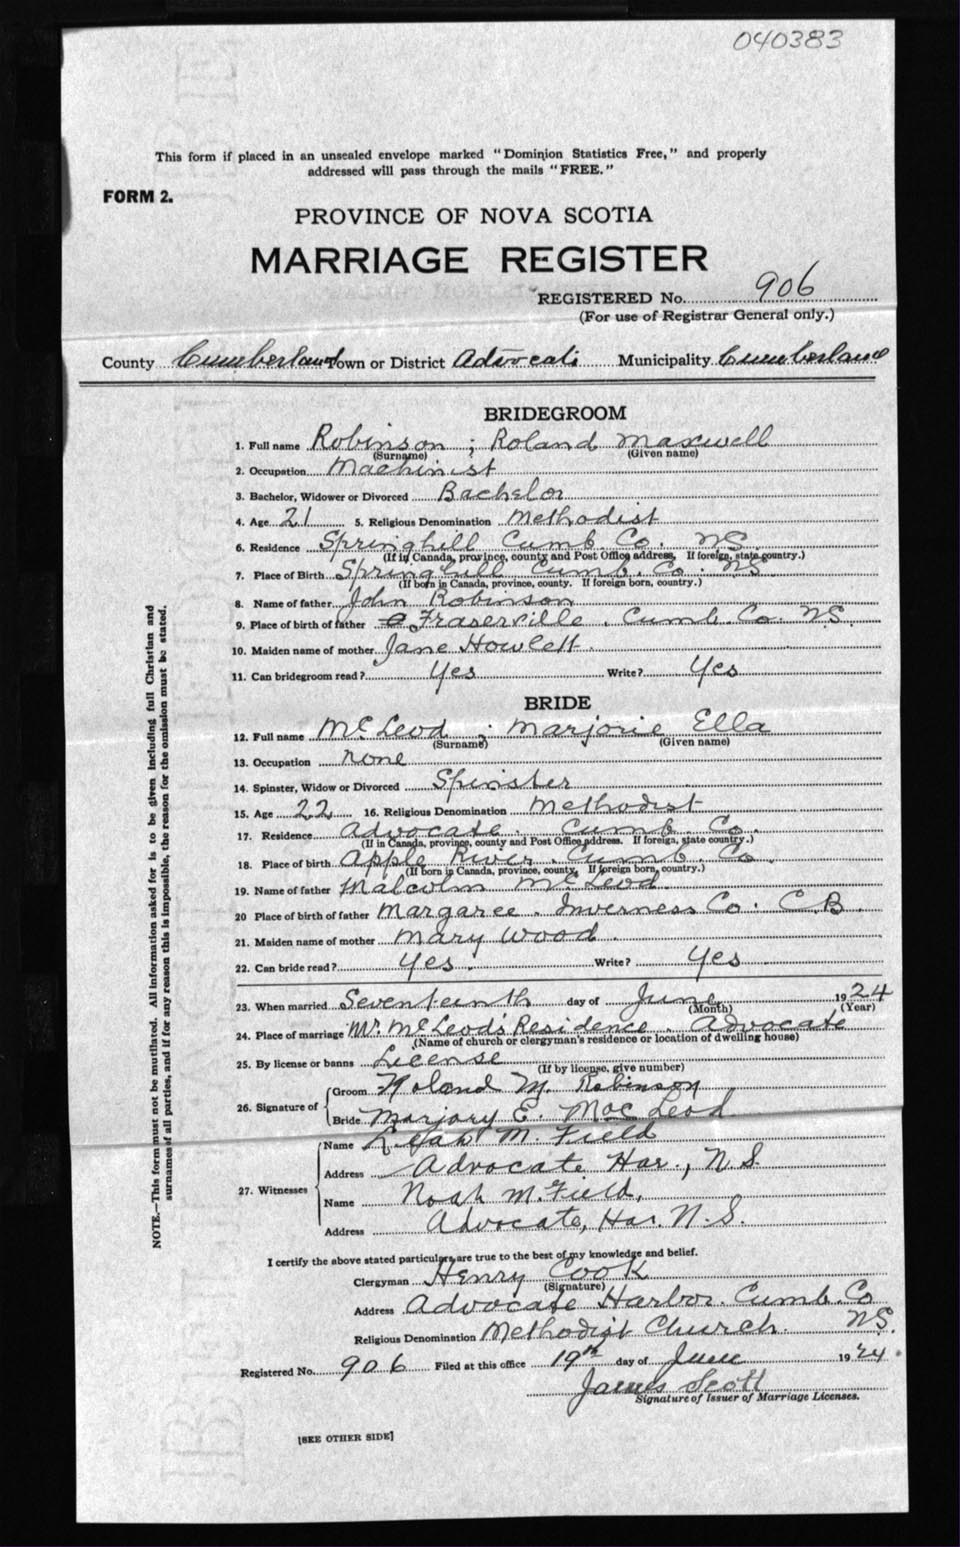 040383
This form if placed in an unsealed envelope marked "Dominion Statistics Free," and properly
addressed will pass through the mails "FREE."
FORM 2.
PROVINCE OF NOVA SCOTIA
MARRIAGE REGISTER
REGISTERED No. 906
(For use of Registrar General only.)
County Cumberland Town or District Advocate Municipality Cumberland
BRIDEGROOM
1. Full name Robinson ; Roland Maxwell
(Surname) (Given name)
2. Occupation Machinist
3. Bachelor, Widower or Divorced Bachelor
4. Age 21 5. Religious Denomination Methodist
6. Residence Springhill Cumb Co. NS
(If in Canada, province, county and Post Office address. If foreign, state country.)
7. Place of Birth Springhill Cumb. Co. NS
(If born in Canada, province, county. If foreign born, country.)
8. Name of father John Robinson
9. Place of birth of father Fraserville. Cumb. Co. NS.
10. Maiden name of mother Jane Howlett.
11. Can bridegroom read? Yes Write? Yes
BRIDE
12. Full name McLeod ; Marjorie Ella
(Surname) (Given name)
13. Occupation none
14. Spinster, Widow or Divorced Spinster
15. Age 22 16. Religious Denomination Methodist
17. Residence Advocate. Cumb. Co.
(If in Canada, province, county and Post Office address. If foreign, state country.)
18. Place of birth Apple River. Cumb. Co.
(If born in Canada, province, county. If foreign born, country.)
19. Name of father Malcolm McLeod.
20 Place of birth of father Margaree. Inverness Co. C B.
21. Maiden name of mother Mary Wood.
22. Can bride read? Yes. Write? Yes
23. When married Seventeenth day of June 1924
(Month) (Year)
24. Place of marriage Mr. McLeod's Residence. Advocate
(Name of church or clergyman's residence or location of dwelling house)
25. By license or banns License
(If by license, give number)
26. Signature of Groom Roland M. Robinson
Bride Marjory E. MacLeod
27. Witnesses Name M. Field
Address Advocate Har., N.S.
Name Noah M. Field,
Address Advocate, Har. N.S.
I certify the above stated particulars are true to the best of my knowledge and belief.
Clergyman Henry Cook
(Signature)
Address Advocate Harbor. Cumb. Co
NS.
Religious Denomination Methodist Church.
Registered No. 906 Filed at this office 19th day of June 1924.
James Scott
Signature of Issuer of Marriage Licenses.
[SEE OTHER SIDE]
NOTE.—This form must not be mutilated. All information asked for is to be given including full Christian and
surnames of all parties, and if for any reason this is impossible, the reason for the omission must be stated.